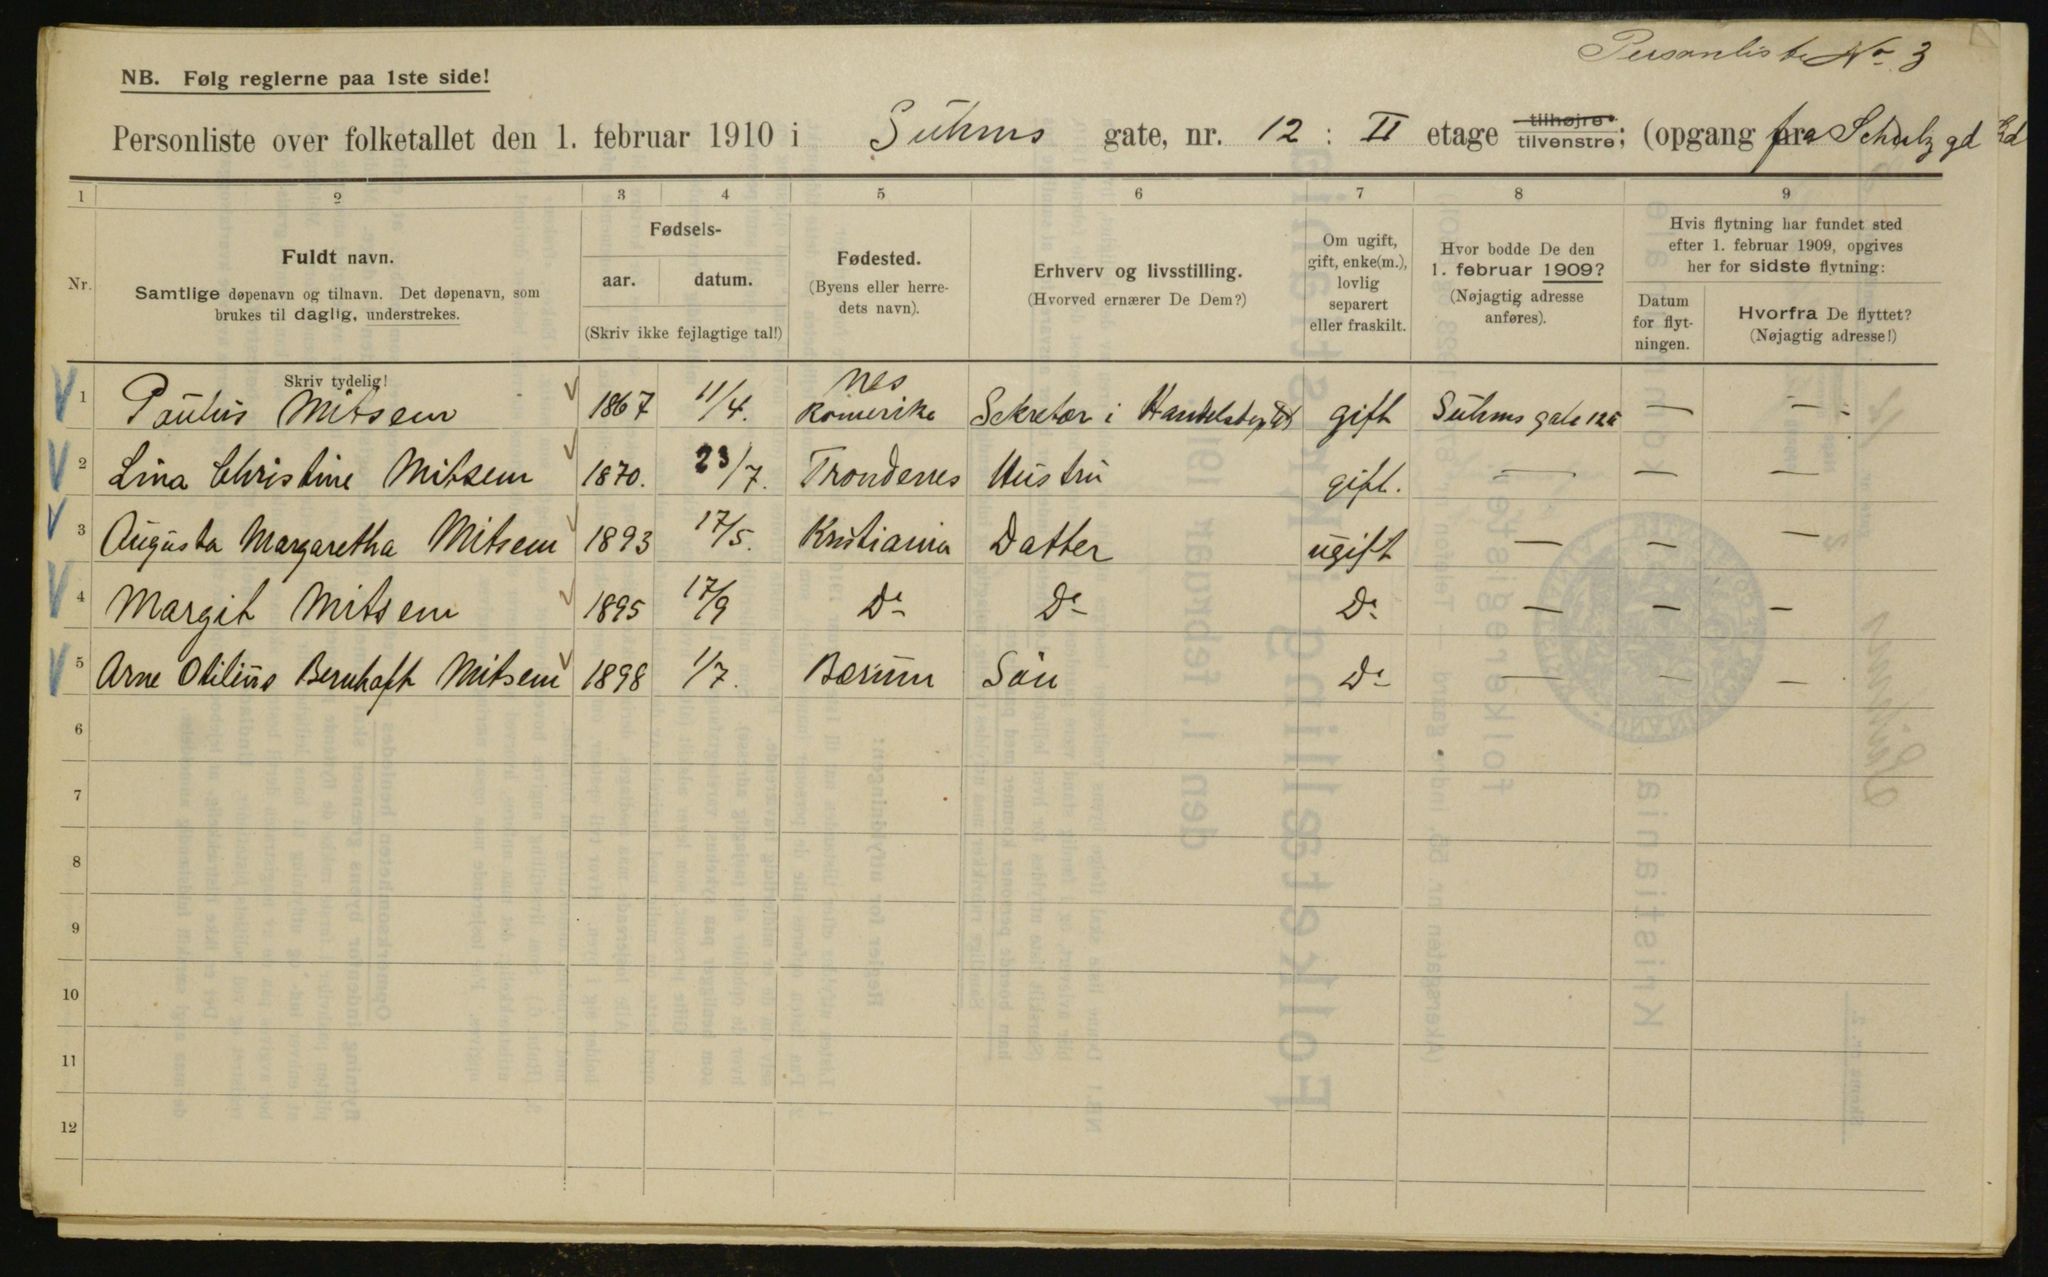 Personliste No 3
NB. Følg reglerne paa 1ste side!
Personliste over folketallet den 1. februar 1910 i Suhms gate, nr. 12 : II etage tilhøjre tilvenstre; (opgang fra Schulz gd
1 2 3 4 5 6 7 8 9
Nr.
Fuldt navn.
Samtlige døpenavn og tilnavn. Det døpenavn, som
brukes til daglig, understrekes.
Fødsels-
aar. datum.
(Skriv ikke fejlagtige tal!)
Fødested.
(Byens eller herre-
dets navn).
Erhverv og livsstilling.
(Hvorved ernærer De Dem?)
Om ugift,
gift, enke(m.),
lovlig
separert
eller fraskilt.
Hvor bodde De den
1. februar 1909?
(Nøjagtig adresse
anføres).
Hvis flytning har fundet sted
efter 1. februar 1909, opgives
her for sidste flytning:
Datum
for flyt-
ningen.
Hvorfra De flyttet?
(Nøjagtig adresse!)
Skriv tydelig!
1 Paulus Mitsem 1867 11/4. Nes Romerike Sekretær i gift Suhms gate 12 — —
2 Lina Christine Mitsem 1870. 23/7. Trondenes Hustru gift. — — —
3 Augusta Margaretha Mitsem 1893 17/5. Kristiania Datter ugift — — —
4 Margit Mitsem 1895 17/9 Do Do Do — — —
5 Arne Otilius Bernhoft Mitsem 1898 1/7. Bærum Søn Do — — —
6
7
8
9
10
11
12